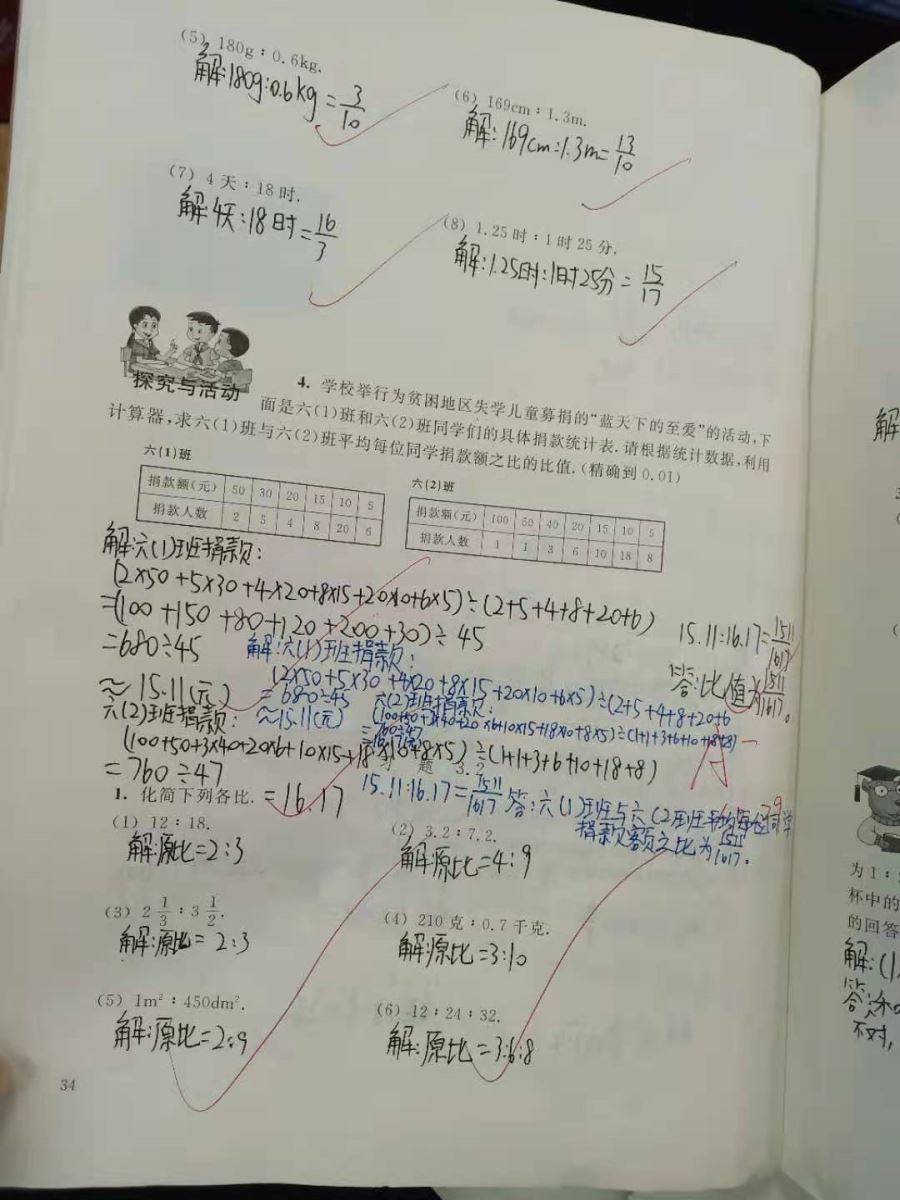 (5) 180g∶0.6kg.
解:180g:0.6kg=3/10
(6) 169cm∶1.3m.
解:169cm:1.3m=13/10
(7) 4天∶18时.
解:4天:18时=16/3
(8) 1.25时∶1时25分.
解:1.25时:1时25分=15/17
探究与活动
4. 学校举行为贫困地区失学儿童募捐的“蓝天下的至爱”的活动,下
面是六(1)班和六(2)班同学们的具体捐款统计表.请根据统计数据,利用
计算器,求六(1)班与六(2)班平均每位同学捐款额之比的比值.(精确到0.01)
六(1)班
捐款额(元) 50 30 20 15 10 5
捐款人数 2 5 4 8 20 6
六(2)班
捐款额(元) 100 50 40 20 15 10 5
捐款人数 1 1 3 6 10 18 8
解:六(1)班捐款:
(2×50+5×30+4×20+8×15+20×10+6×5)÷(2+5+4+8+20+6)
=(100+150+80+120+200+30)÷45
=680÷45
≈15.11(元)
六(2)班捐款:
(100+50+3×40+20×6+10×15+18×10+8×5)÷(1+1+3+6+10+18+8)
=760÷47
=16.17
15.11:16.17=1511/1617
答:比值为1511/1617。
解:六(1)班捐款:
(2×50+5×30+4×20+8×15+20×10+6×5)÷(2+5+4+8+20+6
=680÷45
≈15.11(元)
六(2)班捐款:
(100+50+3×40+20×6+10×15+18×10+8×5)÷(1+1+3+6+10+18+8)
=760÷47
15.11:16.17=1511/1617
答:六(1)班与六(2)班平均每位同学
捐款额之比为1511/1617。
习 题 3.2
1. 化简下列各比.
(1) 12∶18.
解:原比=2:3
(2) 3.2∶7.2.
解:原比=4:9
(3) 2 1/3∶3 1/2.
解:原比=2:3
(4) 210克∶0.7千克.
解:原比=3:10
(5) 1m²∶450dm².
解:原比=2:9
(6) 12∶24∶32.
解:原比=3:6:8
34
解
为1∶
杯中的
的回答
解:(1)
不对,